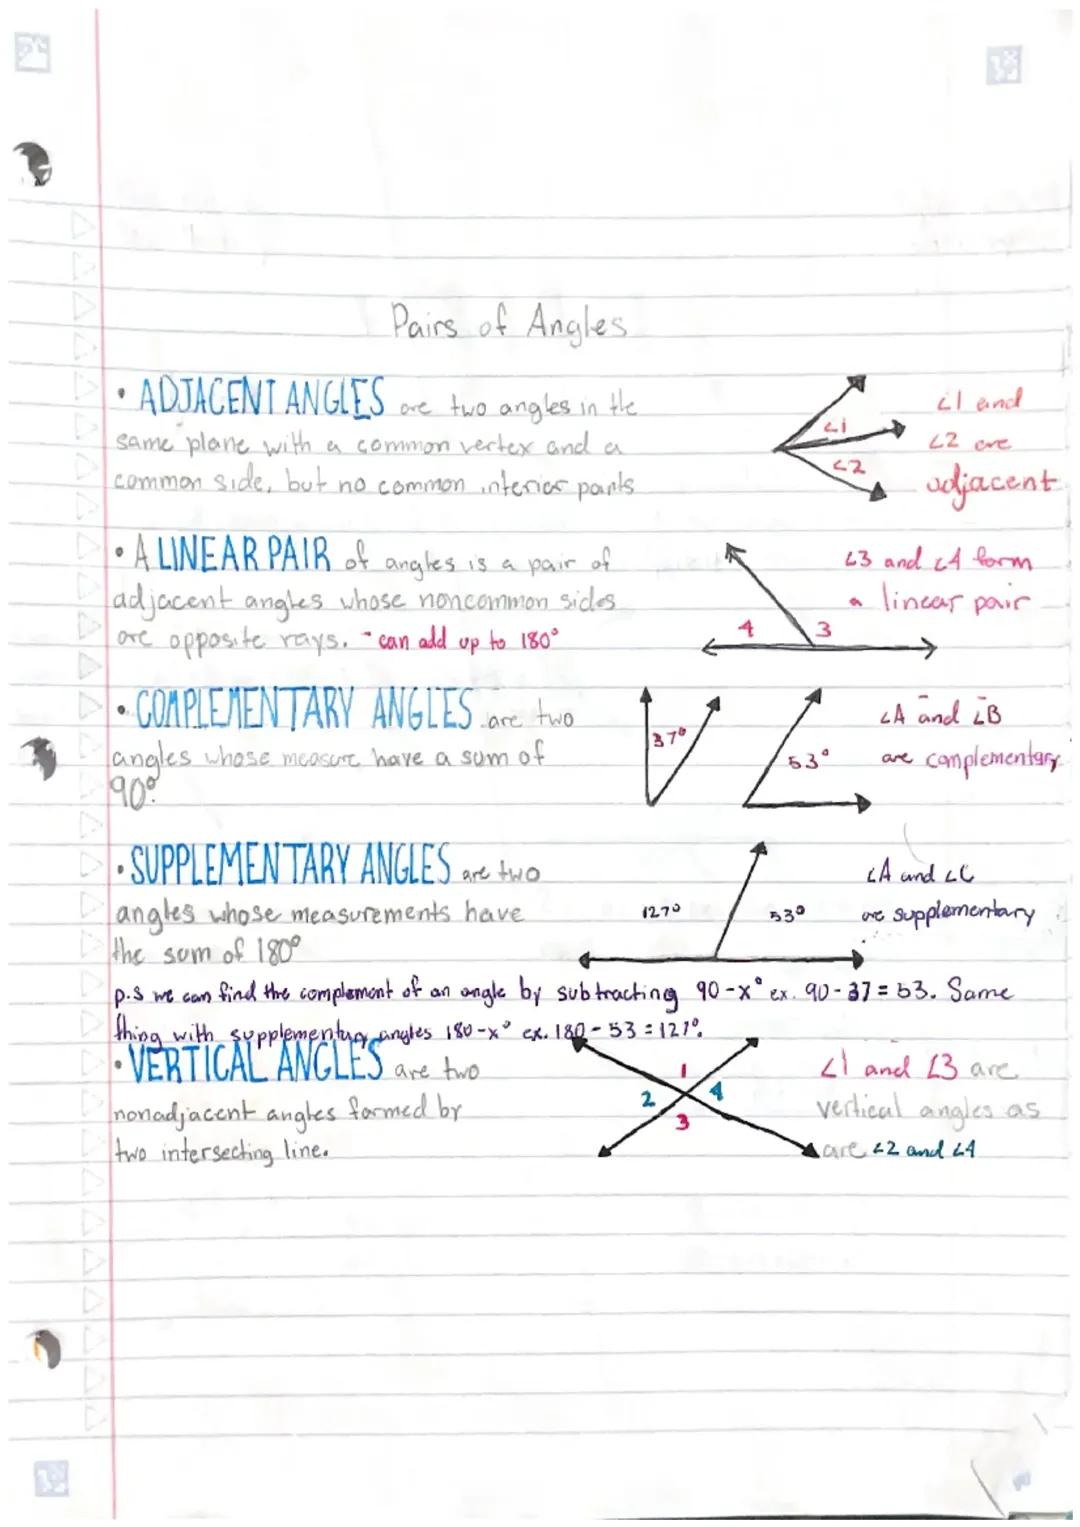 Pairs of Angles
• ADJACENT ANGLES are two angles in the
same plane with a common vertex and a
common side, but no common interior points
∠1
∠2
∠1 and
∠2 are
adjacent
• A LINEAR PAIR of angles is a pair of
adjacent angles whose noncommon sides
are opposite rays. - can add up to 180°
4 3
∠3 and ∠4 form
a linear pair
• COMPLEMENTARY ANGLES are two
angles whose measure have a sum of
90°
37°
53°
∠A and ∠B
are complementary
• SUPPLEMENTARY ANGLES are two
angles whose measurements have
the sum of 180°
127° 53°
∠A and ∠C
are supplementary
p.s we can find the complement of an angle by subtracting 90-x° ex. 90-37=53. Same
thing with supplementary angles 180-x° ex. 180-53=127°.
• VERTICAL ANGLES are two
nonadjacent angles formed by
two intersecting line.
1
2 4
3
∠1 and ∠3 are
vertical angles as
are ∠2 and ∠4